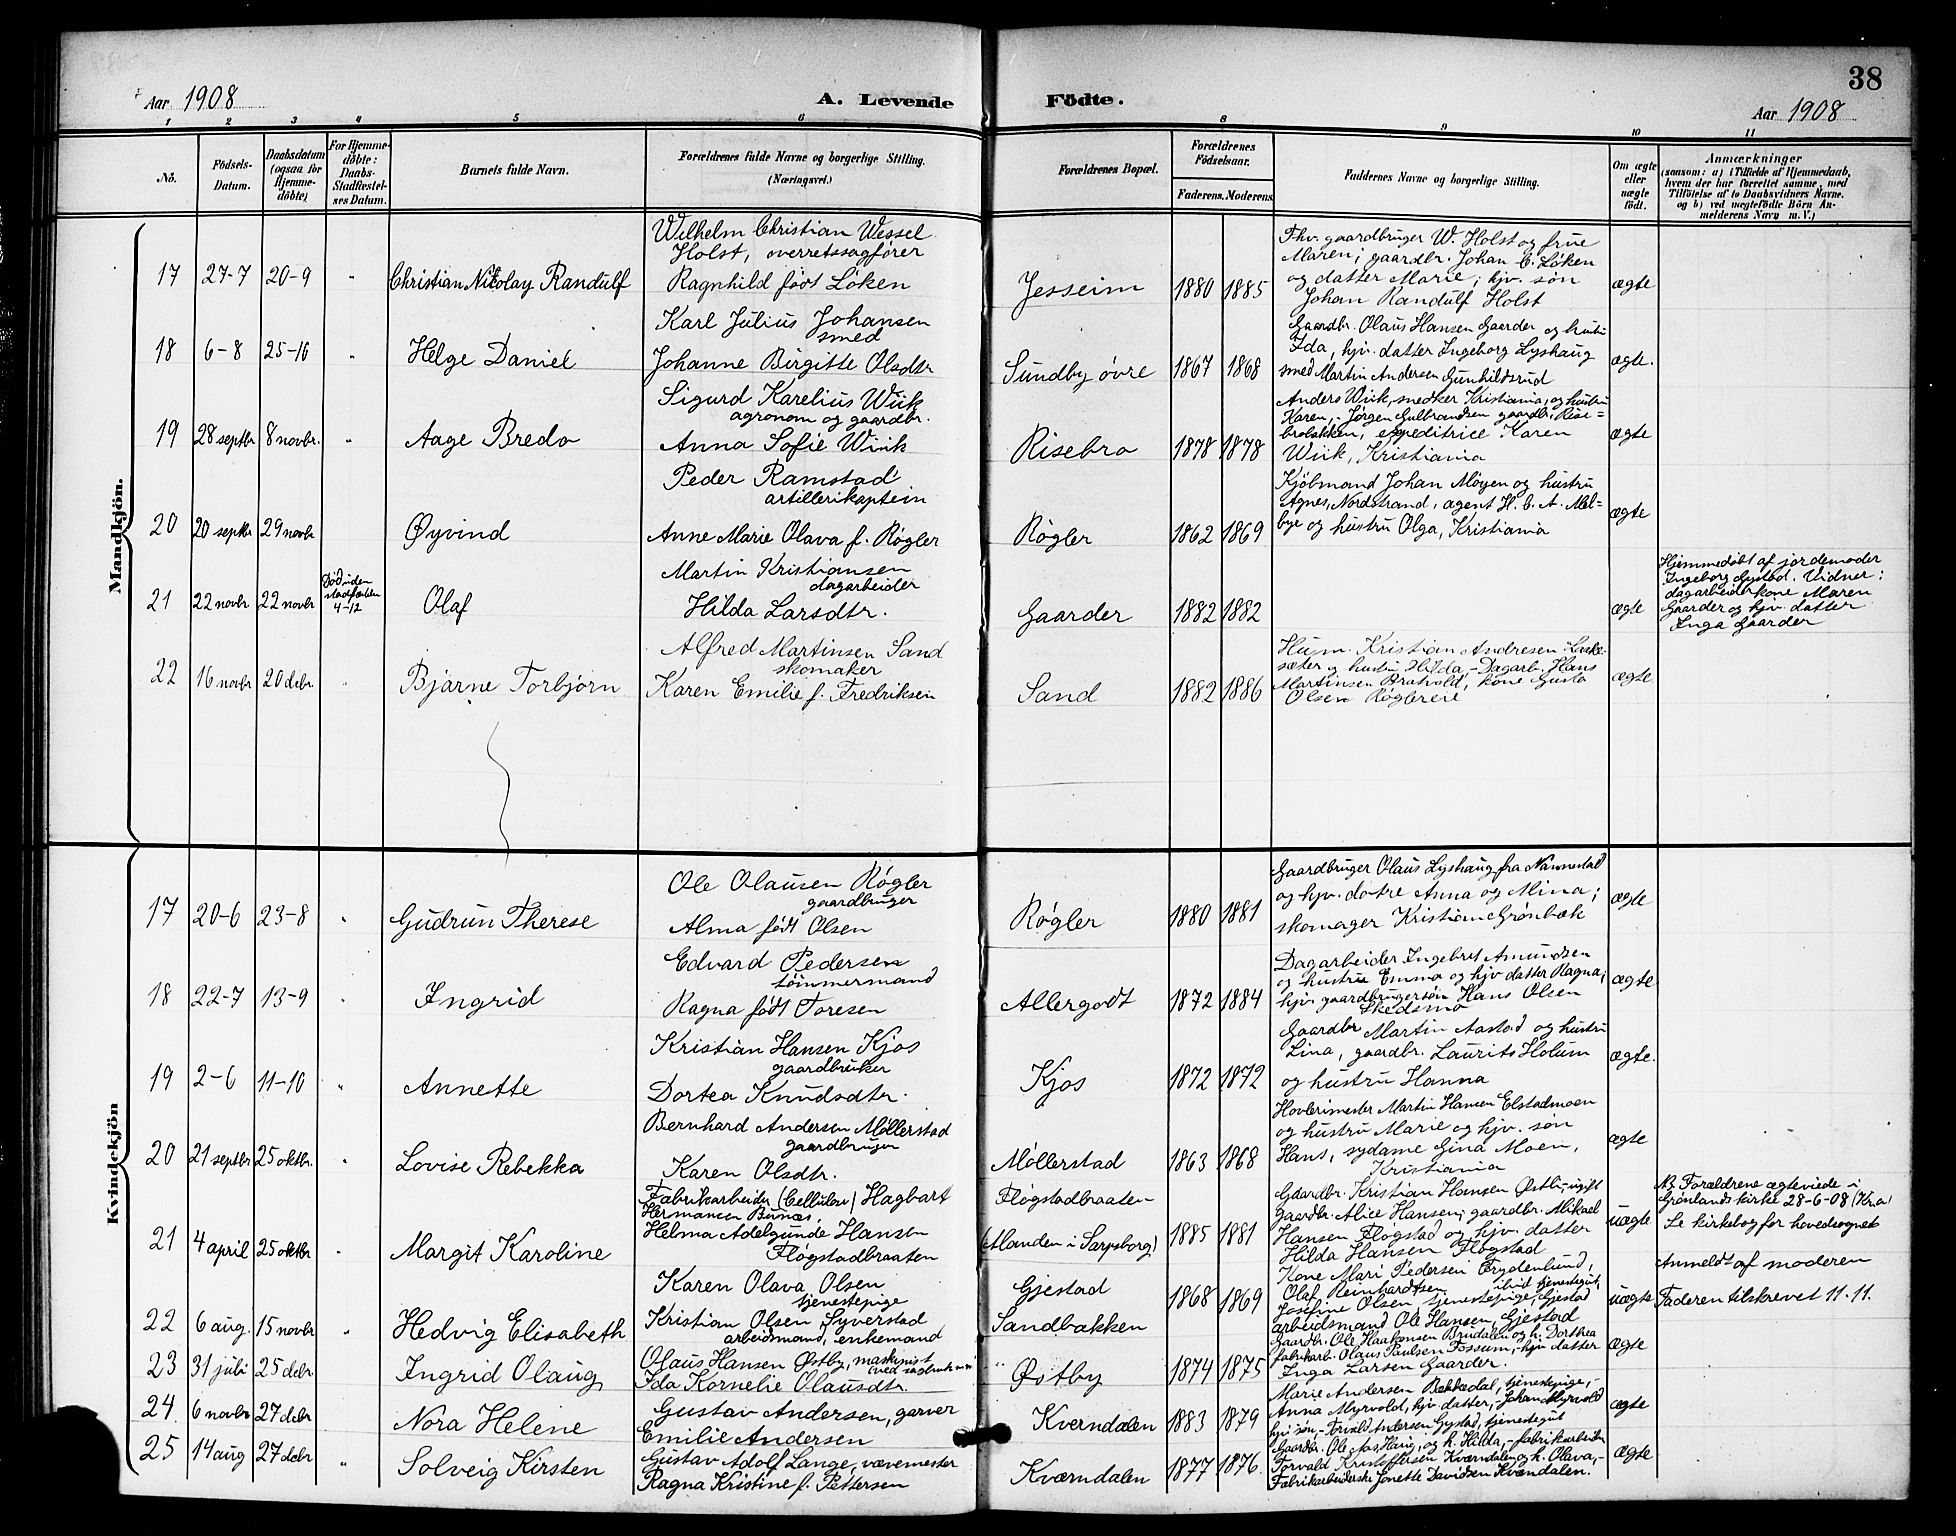 38
Aar 1908
A. Levende
Födte.
Aar 1908
1 2 3 4 5 6 8 9 10 11
No.
Födsels-Datum.
Daabsdatum (ogsaa for Hjemme-döbte)
For Hjemme-döbte: Daabs-Stadfæstel-ses Datum.
Barnets fulde Navn.
Forældrenes fulde Navne og borgerlige Stilling.
(Næringsvei.)
Forældrenes Bopæl.
Forældrenes Födselsaar.
Faderens. Moderens
Faddernes Navne og borgerlige Stilling.
Om ægte eller uægte födt.
Anmærkninger
(saasom: a) i Tilfælde af Hjemmedaab,
hvem der har forrettet samme, med
Tilföielse af to Daabsvidners Navne.
og b) ved uægtefödte Börn An-
melderens Navn m. V.)
Mandkjön.
17 27-7 20-9 " Christian Nikolay Randulf
Wilhelm Christian Wessel
Holst, overretssagfører
Ragnhild født Løken
Jesseim 1880 1885
Fhv. gaardbruger W. Holst og frue
Maren; gaardbr. Johan C. Løken
og datter Marie; hjv. søn
Johan Randulf Holst
ægte
18 6-8 25-10 " Helge Daniel
Karl Julius Johansen
smed
Johanne Birgitte Olsdtr
Sundby øvre 1867 1868
Gaardbr. Olaus Hansen Gaarder og hustru
Ida, hjv. datter Ingeborg Lyshaug
smed Martin Andersen Gunhildsrud
ægte.
19 28 septbr 8 novbr. " Aage Bredo
Sigurd Karelius Wiik
agronom og gaardbr.
Anna Sofie Wiik
Risebro 1878 1878
Anders Wiik, snedker Kristiania, og hustru
Karen, - Jørgen Gulbrandsen gaardbr. Rise=
brobakken, expeditrice Karen
Wiik, Kristiania
ægte
20 20 septbr 29 novbr Øyvind
Peder Ramstad
artillerikaptein
Anne Marie Olava f. Røgler
Røgler 1862 1869
Kjøbmand Johan Møyen og hustru
Agnes, Nordstrand, agent H. C. A. Mel=
bye og hustru Olga, Kristiania
ægte
21 22 novbr 22 novbr
Død uden
stadfæstelse
4-12
Olaf
Martin Kristiansen
dagarbeider
Hilda Larsdtr.
Gaarder 1882 1882
ægte
Hjemmedøbt af jordemoder
Ingeborg Gystad. Vidner:
dagarbeiderkone Maren
Gaarder og hjv. datter
Inga Gaarder
22 16 novbr 20 debr. Bjarne Torbjørn
Alfred Martinsen Sand
skomaker
Karen Emilie f. Fredriksen
Sand 1882 1886
Husm. Kristian Andresen
sæter og hustru Hilda, - Dagarb. Hans
Martinsen Bratvold, kone Gusta
Olsen Røglereie
ægte
Kvindekjön
17 20-6 23-8 " Gudrun Therese
Ole Olausen Røgler
gaardbruger
Alma født Olsen
Røgler 1880 1881
Gaardbruger Olaus Lyshaug fra Nannestad
og hjv. døtre Anna og Mina;
skomager Kristian Grønbæk
ægte
18 22-7 13-9 " Ingrid
Edvard Pedersen
tømmermand
Ragna født Toresen
Allergodt 1872 1884
Dagarbeider Ingebret Amundsen
og hustru Emma og hjv datter Ragna;
hjv. gaardbrugersøn Hans Olsen
Skedsmo
ægte
19 2-6 11-10 " Annette
Kristian Hansen Kjos
gaardbruker
Dortea Knudsdtr.
Kjos 1872 1872
Gaardbr Martin Aastad og hustru
Lina, gaardbr. Laurits Holum
og hustru Hanna
ægte.
20 21 septbr 25 oktbr. " Lovise Rebekka
Bernhard Andersen Møllerstad
gaardbruger
Karen Olsdtr.
Møllerstad 1863 1868
Høvlerimester Martin Hansen Elstadmoen
og hustru Marie og hjv. søn
Hans, sydame Gina Moen,
Kristiania
ægte
21 4 april 25 oktbr " Margit Karoline
Fabrikarbeider (Cellulose) Hagbart
Hermansen Bunæs
Helma Adelgunde Hansen
Fløgstadbraaten
Fløgstadbraaten-
(Manden i Sarpsborg)
1885 1881
Gaardbr. Kristian Hansen Østby, ugift
gaardbr. Alice Hansen; gaardbr. Mikael
Hansen Fløgstad og hjv. datter
Hilda Hansen Fløgstad
uægte
NB Forældrene ægteviede i
Grønlands kirke 28-6-08 (Kr.a)
Se kirkebog for hovedsognet
22 6 aug. 15 novbr " Hedvig Elisabeth
Karen Olava Olsen
tjenestepige
Kristian Olsen Syverstad
arbeidsmand, enkemand
Gjestad
Sandbakken
1868 1869
Kone Mari Pedersen Frydenlund,
Olaf Reinhardtsen tjenestegut,
Josefine Olsen tjenestepige, Gjestad
arbeidsmand Ole Hansen, Gjestad
uægte
Anmeldt af moderen
Faderen tilskrevet 11.11.
23 31 juli 25 debr. Ingrid Olaug
Olaus Hansen Østby, maskinist
Ida Kornelie Olausdtr.
Østby 1874 1875
Gaardbr. Ole Haakonsen Brudalen og h. Dorthea
fabrikarb. Olaus Paulsen Fossum, hjv datter
Inga Larsen Gaarder.
ægte
24 6 novbr 27 debr Nora Helene
Gustav Andersen, garver
Emilie Andersen
Kverndalen 1883 1879
Marie Andersen Bekkedal, tjenestepige, -
Anna Myrvold, hjv datter, - Johan Myrvold
hjv søn, - Torvald Andersen Gystad, tjenestegut
ægte
25 14 aug 27 debr " Solveig Kirsten
Gustav Adolf Lange, vævemester
Ragna Kristine f. Pettersen
Kværndalen 1877 1876
Gaardbr. Ole Aas, Haug, og h. Hilda, - fabrikarbeider
Torvald Kristoffersen Kværndalen og h. Olava, -
Fabrikarbeiderske Jonette Davidsen Kværndalen.
ægte